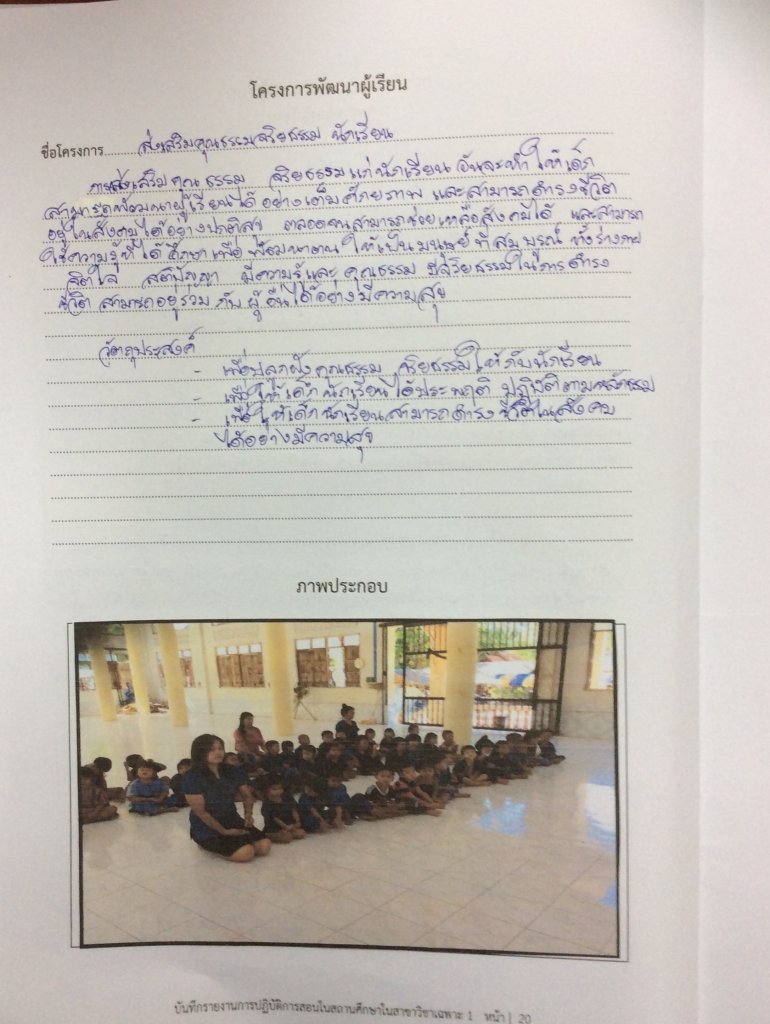 โครงการพัฒนาผู้เรียน
ชื่อโครงการ ส่งเสริมคุณธรรมจริยธรรม นักเรียน
การส่งเสริม คุณธรรม จริยธรรมแก่นักเรียน อันจะทำให้เด็ก
สามารถพัฒนาผู้เรียนได้อย่างเต็มศักยภาพ และสามารถดำรงชีวิต
อยู่ในสังคมได้อย่างปกติสุข ตลอดจนสามารถช่วยเหลือสังคมได้ และสามารถ
ใช้ความรู้ที่ได้ศึกษาเพื่อพัฒนาตน ให้เป็นมนุษย์ที่สมบูรณ์ ทั้งร่างกาย
จิตใจ สติปัญญา มีความรู้และคุณธรรม มีจริยธรรมในการดำรง
ชีวิต สามารถอยู่รวมกับผู้อื่นได้อย่างมีความสุข
วัตถุประสงค์
- เพื่อปลูกฝังคุณธรรม จริยธรรมให้กับนักเรียน
- เพื่อให้เด็กนักเรียนได้ประพฤติ ปฏิบัติตามหลักธรรม
- เพื่อให้เด็กนักเรียนสามารถดำรงชีวิตในสังคม
ได้อย่างมีความสุข
ภาพประกอบ
บันทึกรายงานการปฏิบัติการสอนในสถานศึกษาในสาขาวิชาเฉพาะ 1 หน้า | 20